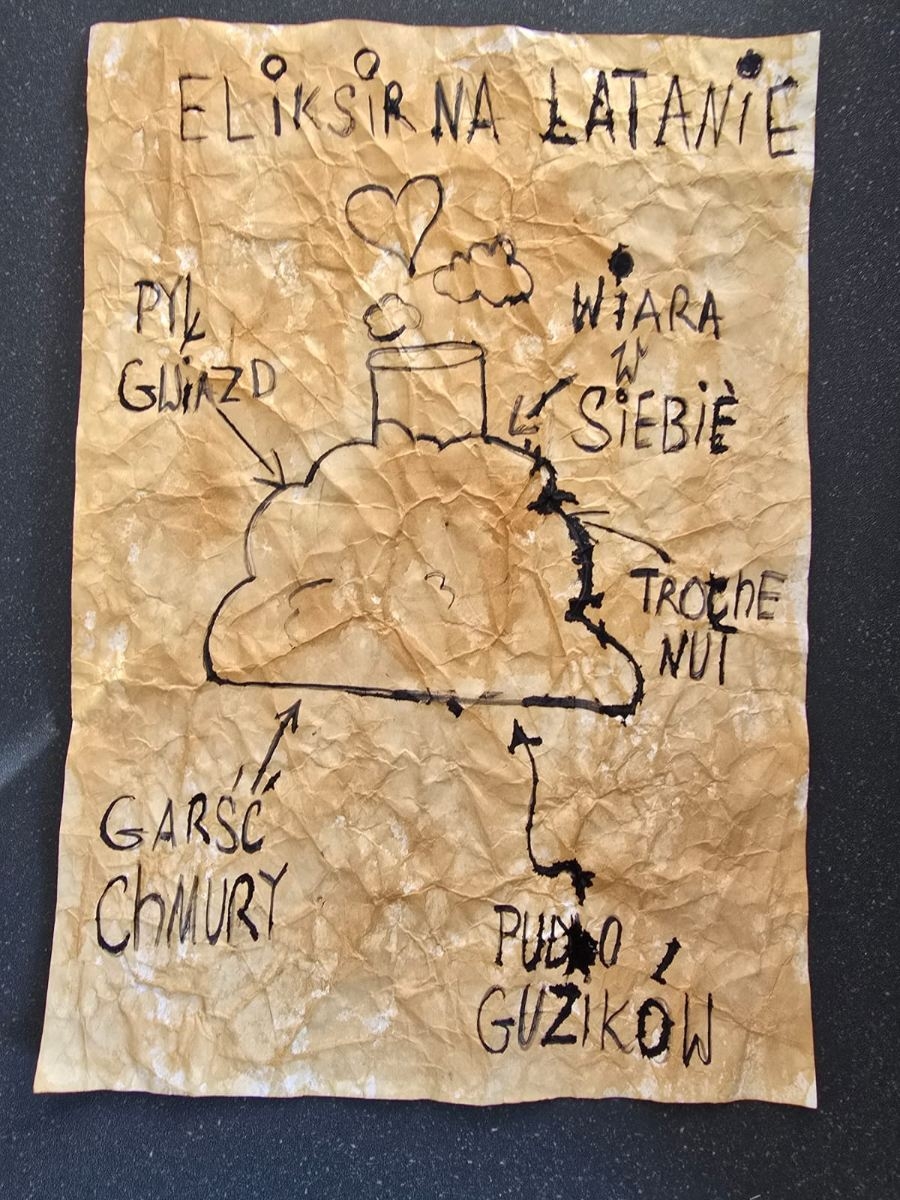 ELiKSiR NA ŁATANiE
PYŁ
GWiAZD
WiARA
W
SiEBiE
TROChE
NUT
GARŚĆ
ChMURY
PUDŁO
GUZIKÓW